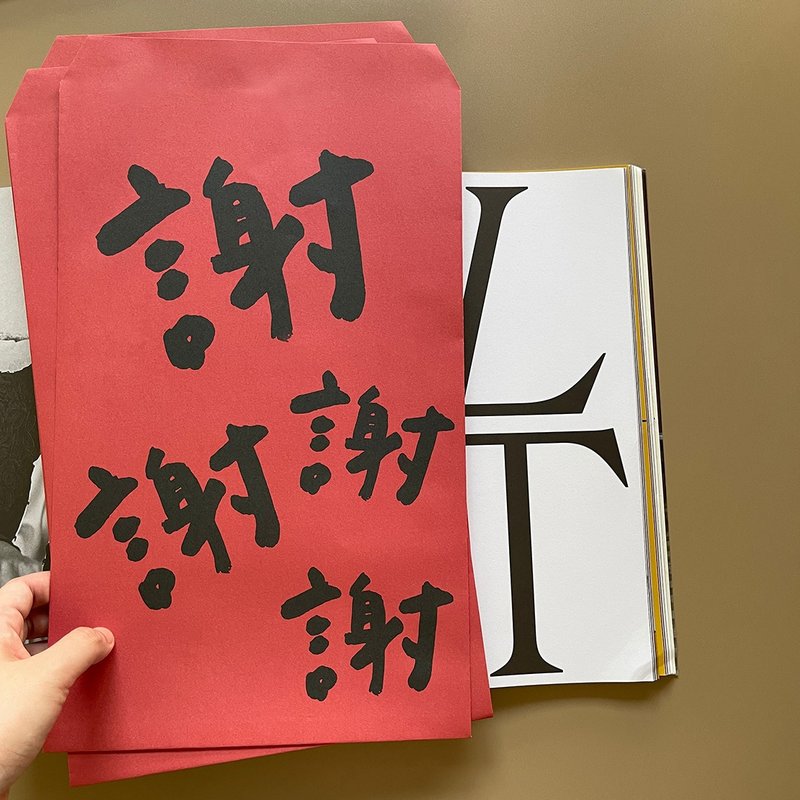 謝
謝
謝
謝
L
T